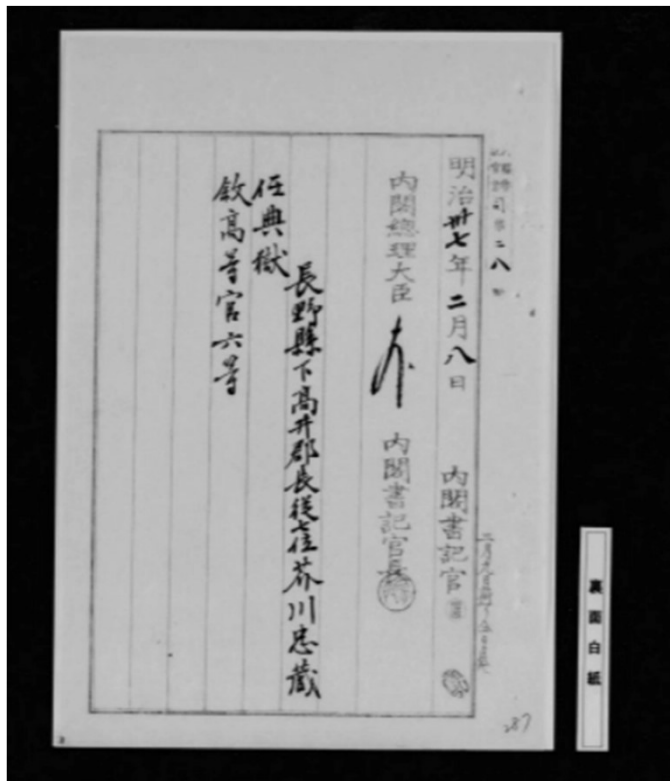 明治卅七年二月八日
内閣書記官
内閣總理大臣
内閣書記官長
長野縣下高井郡長從七位芥川忠蔵
任典獄
敘高等官六等
裏面白紙
287